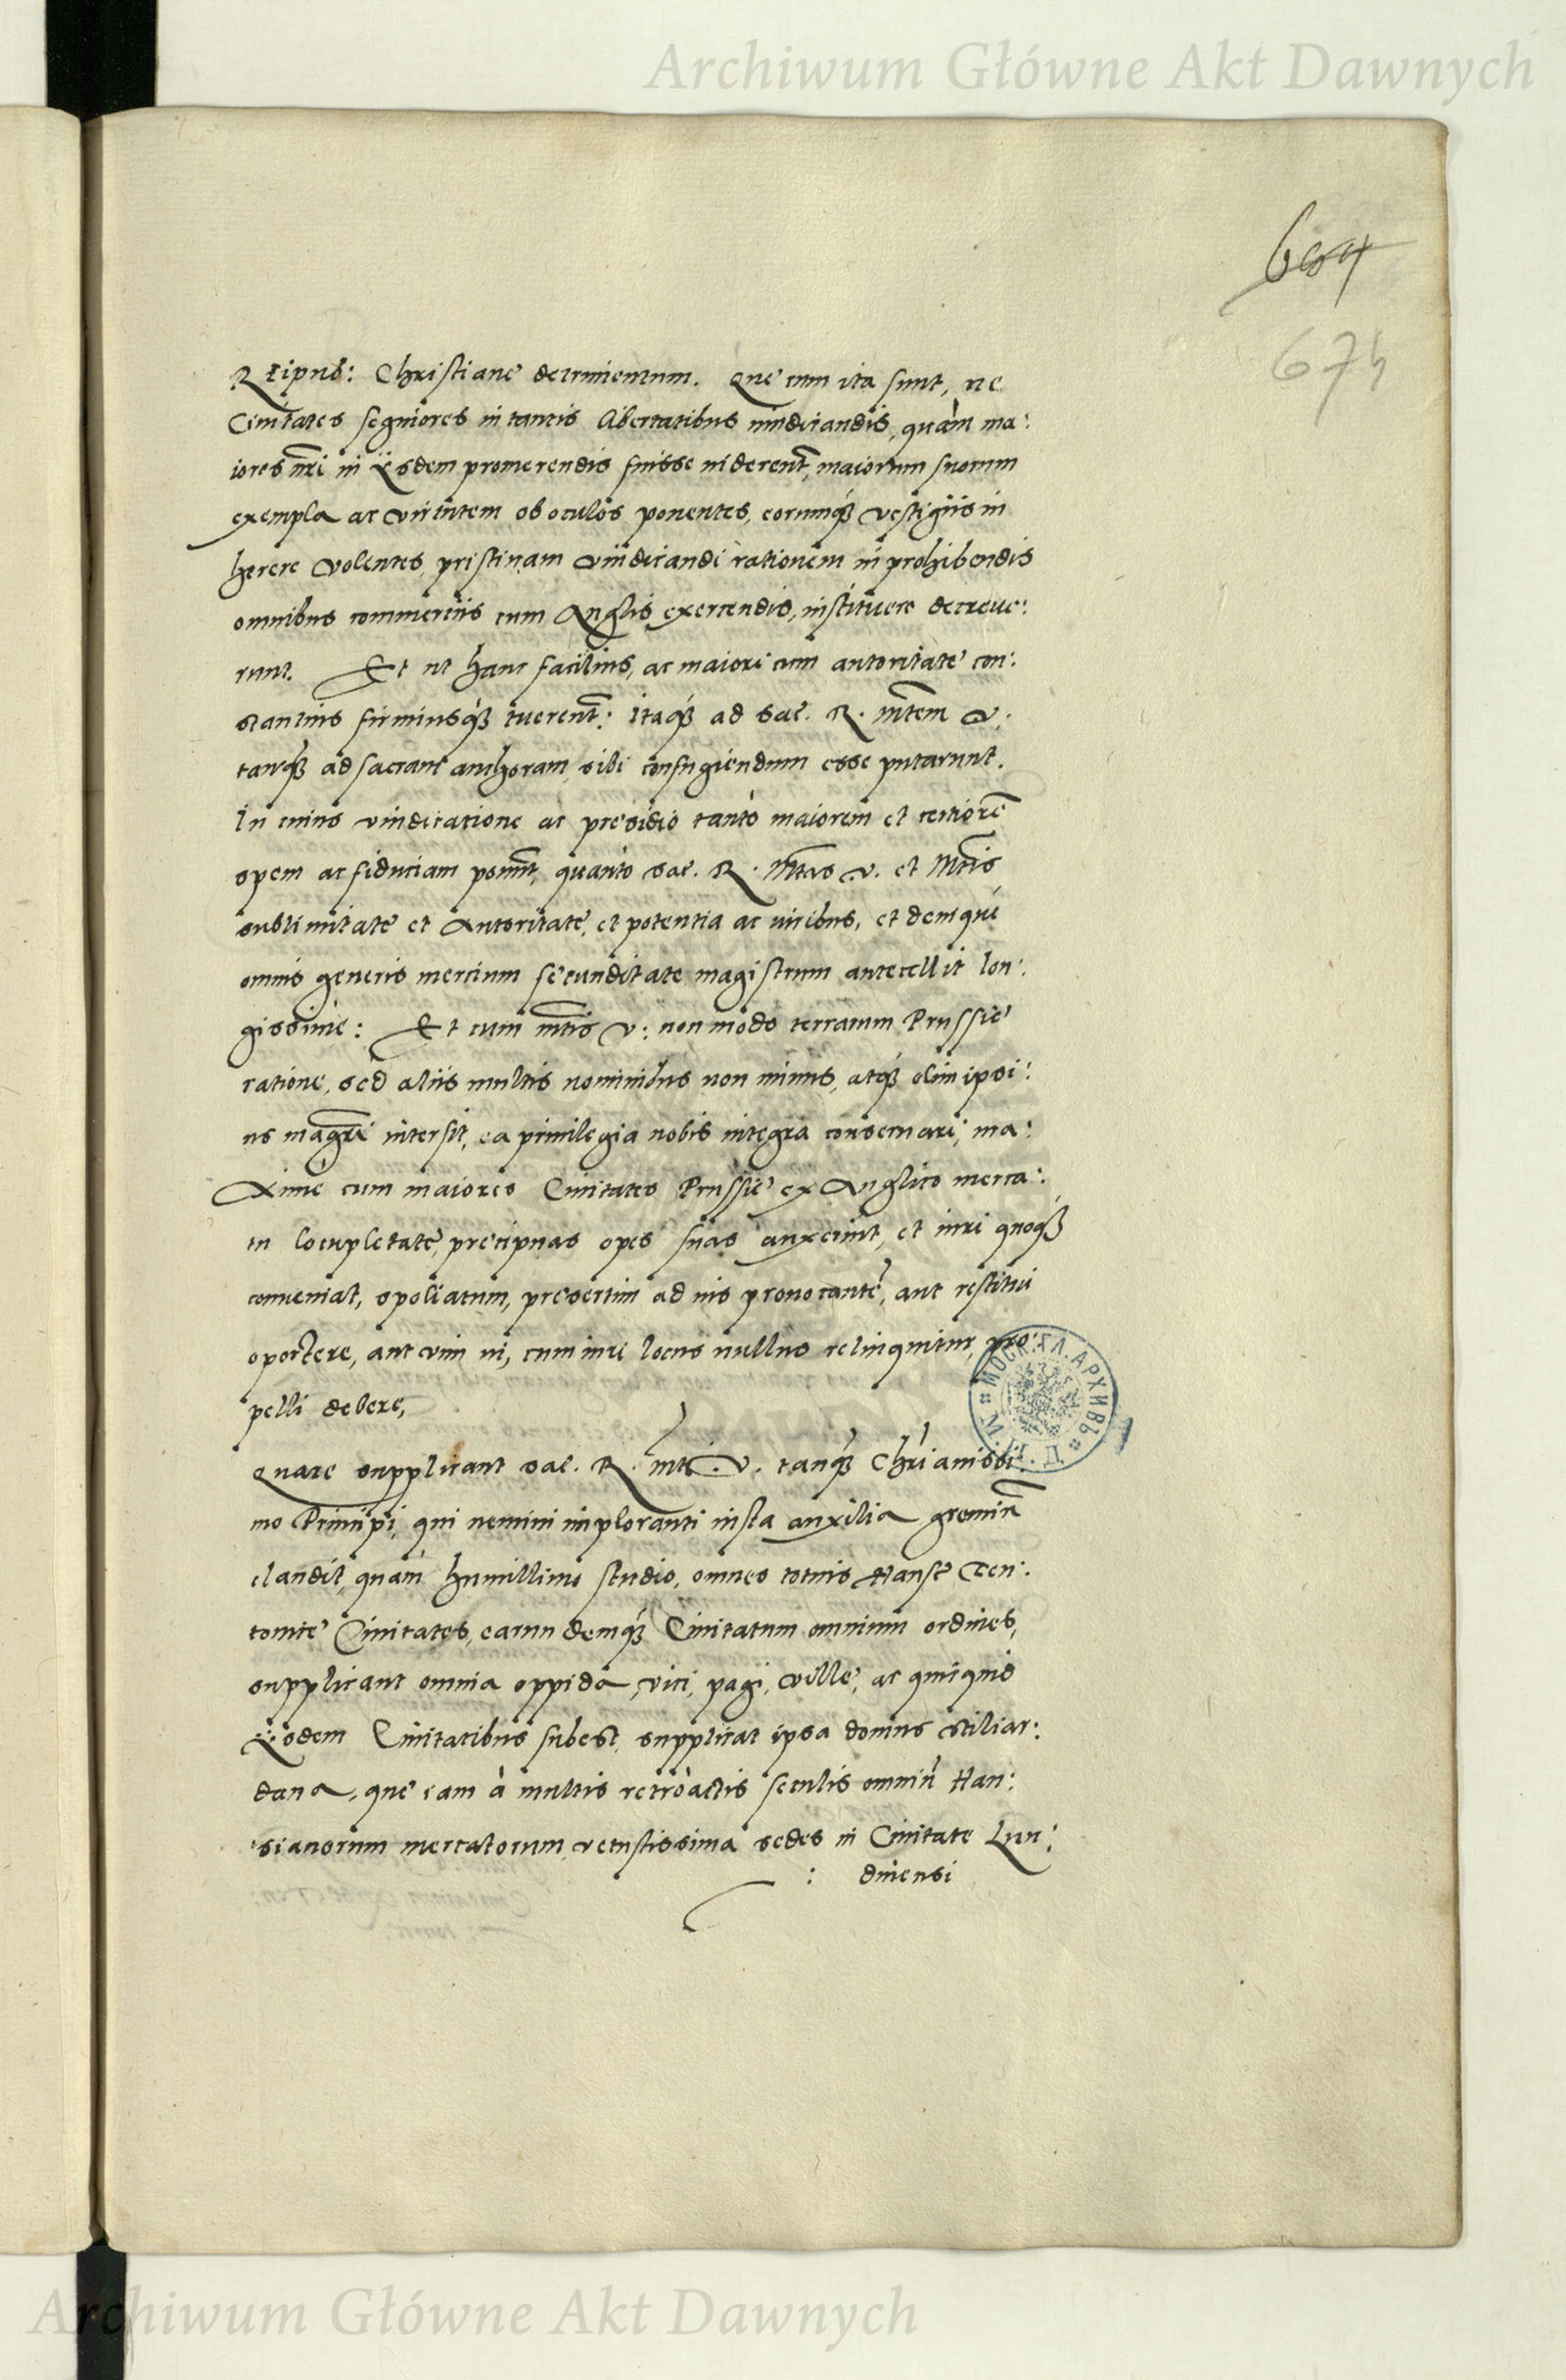 Archiwum Główne Akt Dawnych
664
674
Reipub: Christiane detrimentum. Que cum ita sunt, ne
Civitates segniores in tantis libertatibus vindicandis, quàm ma:
iores nri in ÿsdem promerendis fuisse viderent, maiorum suorum
exempla ac virtutem ob oculos ponentes, eorumq; vestigiis in
herere volentes, pristinam vindicandi rationem in prohibendis
omnibus commerciis cum Anglis exercendis, instituere decreve:
runt. Et ut hanc facilius, ac maiori cum autoritate con:
stantius firmiusq; tuerent: Itaq; ad Sac. R. Mtem V.
tanq; ad sacram anchoram, sibi confugiendum esse putarunt.
In cuius vindicatione ac presidio tantò maiorem et certiorē
spem ac fiduciam ponunt, quantò Sac. R. Mtas V. et Mtis
sublimitate et Autoritate, et potentia ac viribus, et deniqué
omnis generis mercium fecunditate magistrum antecellit lon:
gissimè: Et cum Mtis V: non modo terrarum Prussie
ratione, sed aliis multis nominibus non minus, atq; olim ipsi:
us magri intersit, ea privilegia nobis integra conservari, ma:
ximè cum maiores Civitates Prussie ex Anglico merca:
tu locupletate, precipuas opes suas auxerint, et iuri quoq;
conveniat, spoliatum, presertim ad ius provocantē, aut restitui
oportere, aut vim vi, cum iuri locus nullus relinquitur, pro:
pelli debere,
Quare supplicant Sac. R. Mti. V. tanq; Chrianissi:
mo Principi, qui nemini imploranti iusta auxilia gremiū
claudit, quàm humillimo studio, omnes totius Hanse Teu:
tonice Civitates, earundemq; Civitatum omnium ordines,
supplicant omnia oppida, vici, pagi, ville, ac quicquid
ÿsdem Civitatibus subest, supplicat ipsa domus Stiliar:
dana, que iam à multis retròactis seculis omniū Han:
sianorum mercatorum vetustissima sedes in Civitate Lun:
: dinensi
МОСК. ГЛ. АРХИВЪ
М. И. Д.
Archiwum Główne Akt Dawnych